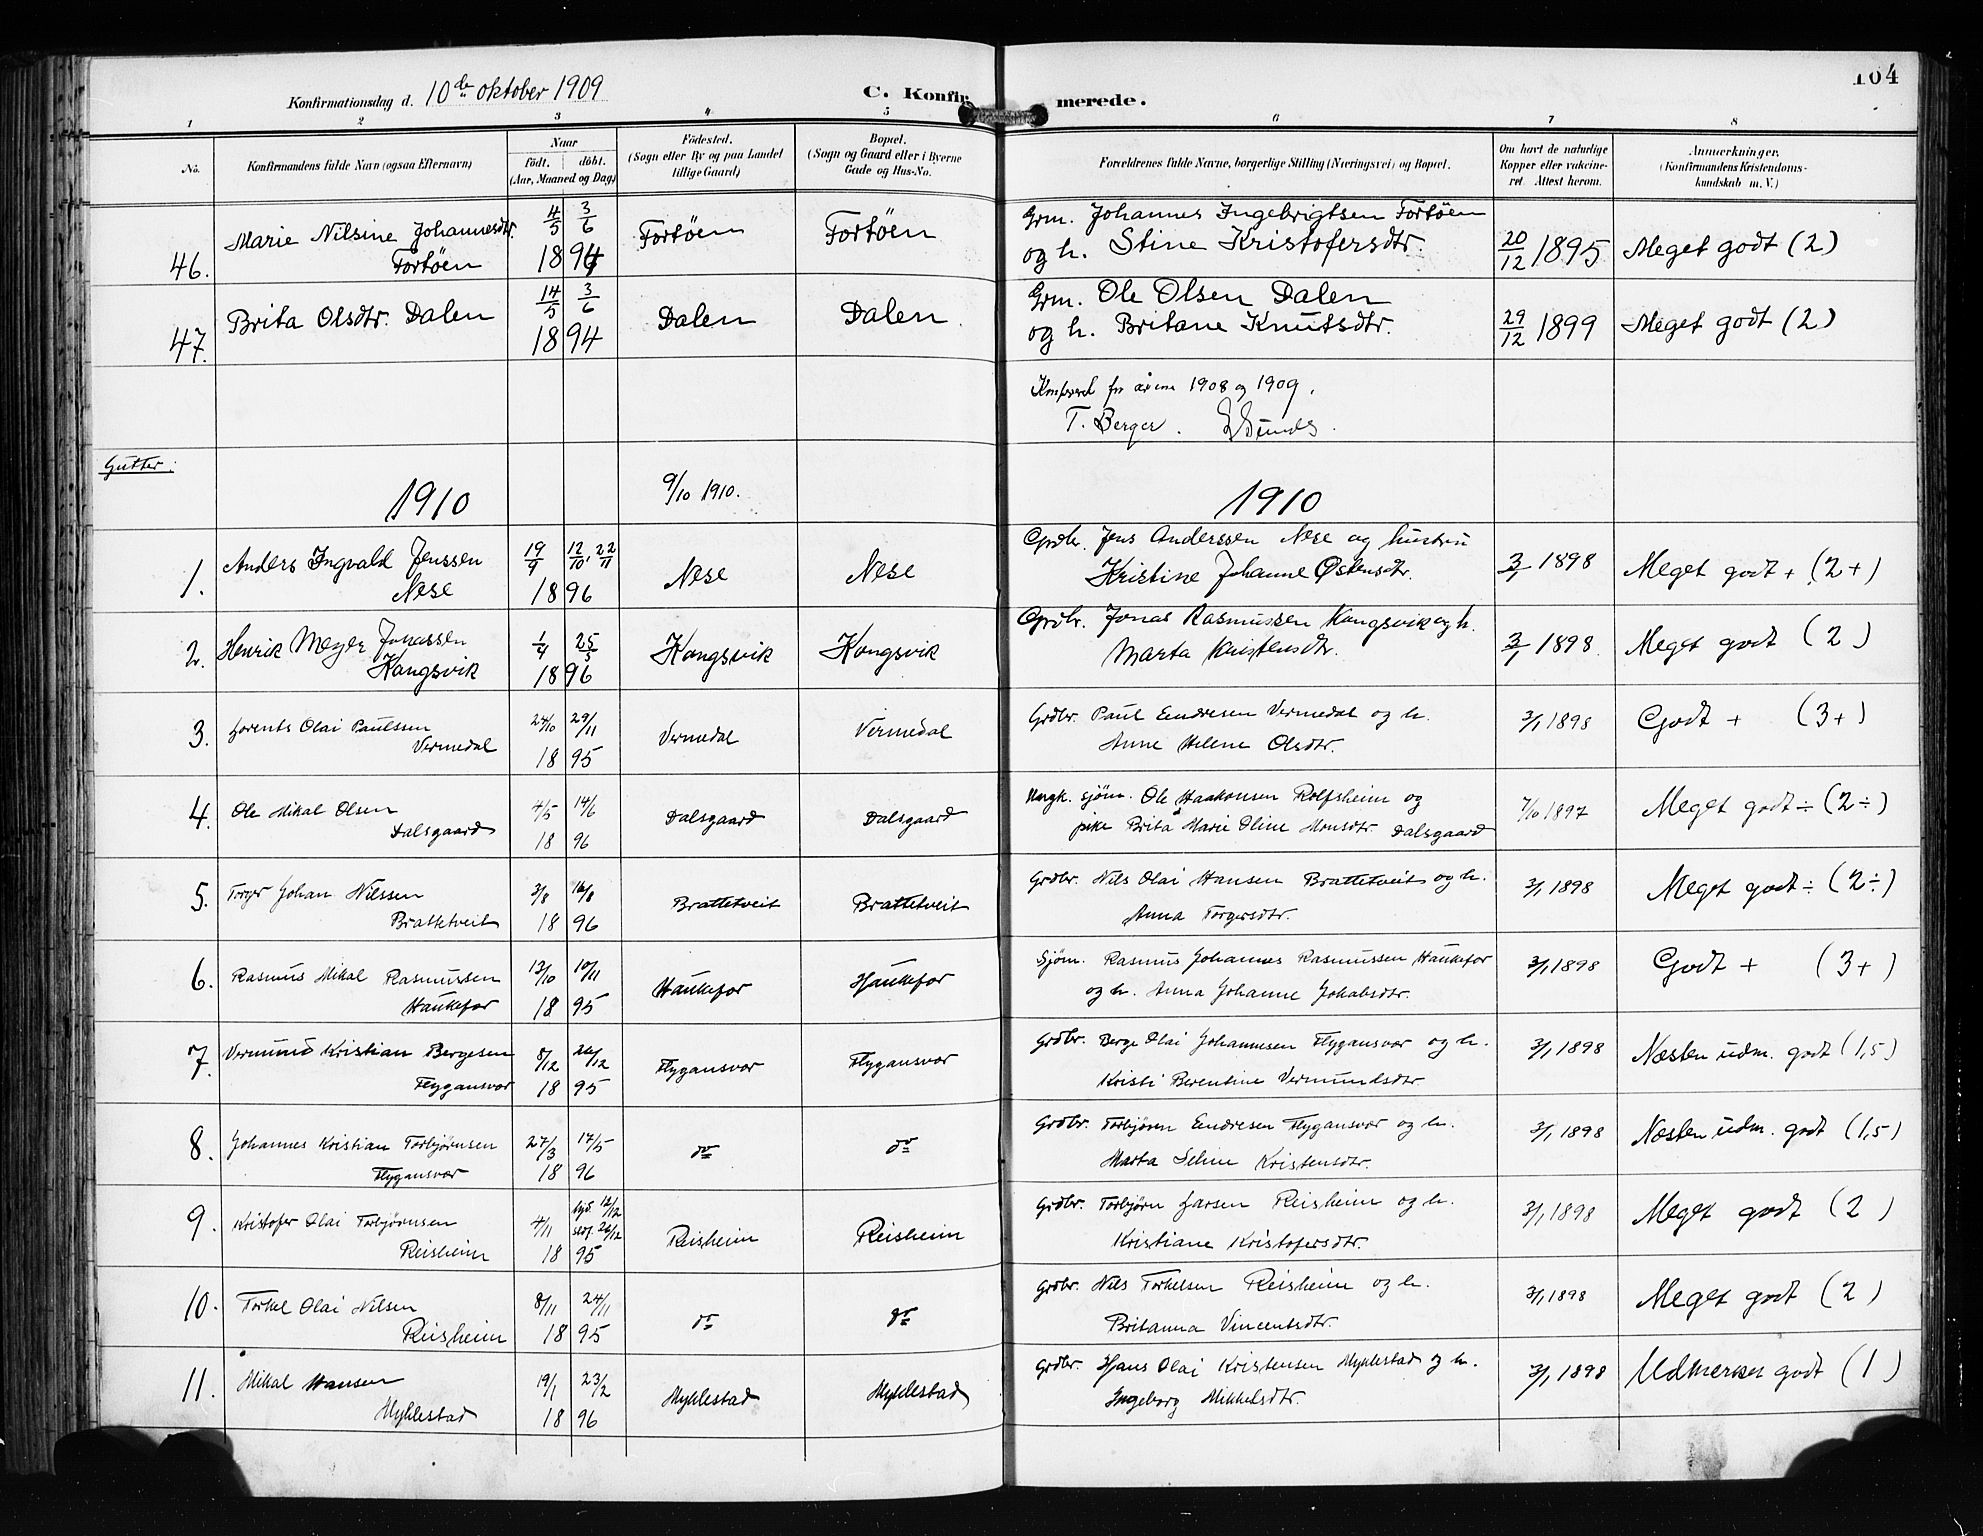 104
Konfirmationsdag d. 10de oktober 1909 C. Konfirmerede.
1 2 3 4 5 6 7 8
No. Konfirmandens fulde Navn (ogsaa Efternavn) Naar født. døbt. (Aar, Maaned og Dag) Födested. (Sogn eller By og paa Landet tillige Gaard) Bopæl. (Sogn og Gaard eller i Byerne Gade og Hus-No. Forældrenes fulde Navne, borgerlige Stilling (Næringsvei) og Bopæl. Om havt de naturlige Kopper eller vakcineret. Attest herom. Anmærkninger. (Konfirmandens Kristendomskundskab m. V.)
46. Marie Nilsine Johannesdtr. 4/5 3/6 Fortöen Fortöen Grm. Johannes Ingebrigtsen Fortöen 20/12 1895 Meget godt (2)
Fortöen 1894 og h. Stine Kristofersdtr.
47. Brita Olsdtr. Dalen 14/5 3/6 Dalen Dalen. Grm. Ole Olsen Dalen 29/12 1899 Meget godt (2)
1894 og h. Britane Knutsdtr.
Konfereret for årene 1908 og 1909.
T. Berger.
Gutter:
1910 9/10 1910. 1910
1. Anders Ingvald Jenssen 19/9 12/10, 22/11 Nese Nese Grdbr. Jens Anderssen Nese og hustru 3/1 1898 Meget godt + (2+)
Nese 1896 Kristine Johanne Østensdtr.
2. Henrik Meyer Jonassen 1/4 25/5 Kongsvik Kongsvik Grdbr. Jonas Rasmussen Kongsvik og h. 3/1 1898. Meget godt (2)
Kongsvik 1896 Marta Kristensdtr.
3. Lorents Olai Paulssen 24/10 29/11 Vermedal Vermedal Grdbr. Paul Endresen Vermedal og h. 3/1 1898 Godt + (3+)
Vermedal 1895 Anne Helene Olsdtr.
4. Ole Mikal Olsen 4/5 14/6 Dalsgaard Dalsgaard Ungk. sjöm. Ole Haakonsen Rolfsheim og 7/10 1897 Meget godt ÷ (2÷)
Dalsgaard 1896 pike Brita Marie Oline Monsdtr. Dalsgaard
5. Torger Johan Nilssen 3/8 16/8 Brattetveit Brattetveit Grdbr. Nils Olai Hansen Brattetveit og h. 3/1 1898 Meget godt ÷ (2÷)
Brattetveit 1896 Anna Torgersdtr.
6. Rasmus Mikal Rasmussen 13/10 10/11 Haukefor Haukefor Sjöm. Rasmus Johannes Rasmussen Haukefor 3/1 1898 Godt + (3+)
Haukefor 1895 og h. Anna Johanne Jokabsdtr.
7. Vermund Kristian Bergesen 8/12 26/12 Flygansvor Flygansvor Grdbr. Berge Olai Johannesen Flygansvor og h. 3/1 1898 Næsten udm. godt (1,5)
Flygansvor 1895 Kristi Berentine Vermundsdtr.
8. Johannes Kristian Torbjörnsen 27/3 17/5 do do Grdbr. Torbjörn Endresen Flygansvor og h. 3/1 1898 Næsten udm. godt (1,5)
Flygansvor 1896 Marta Seline Kristensdtr.
9. Kristofer Olai Torbjörnsen 4/11 hjd. 12/12 stdf. 26/12 Reisheim Reisheim Grdbr. Torbjörn Larsen Reisheim og h. 3/1 1898 Meget godt (2)
Reisheim 1895 Kristiane Kristofersdtr.
10. Torkel Olai Nilsen 8/11 24/11 do do Grdbr. Nils Torkelsen Reisheim og h. 3/1 1898 Meget godt (2)
Reisheim 1895 Britanna Vincentsdtr.
11. Mikal Hansen 19/1 23/2 Myklestad Myklestad Grdbr. Hans Olai Kristensen Myklestad og h. 3/1 1898 Udmerket godt (1)
Myklestad 1896 Ingeborg Mikkelsdtr.